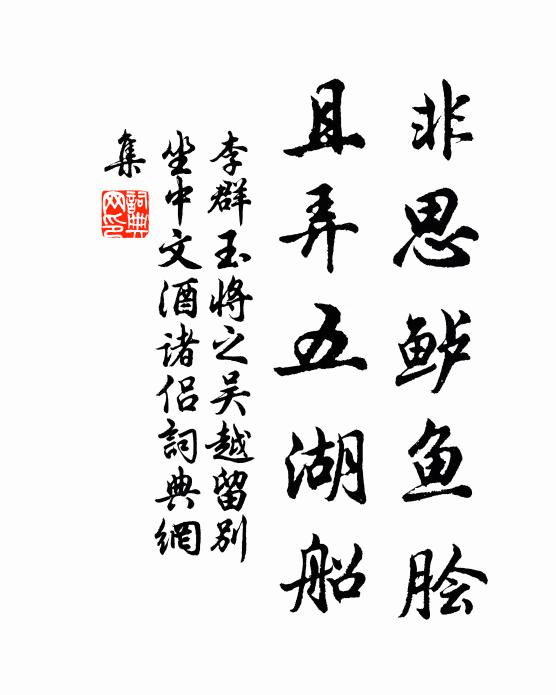 非思鲈鱼脍
且弄五湖船
李群玉將之吴越留别
坐中文酒诸侣詞典網
集
詞典網印